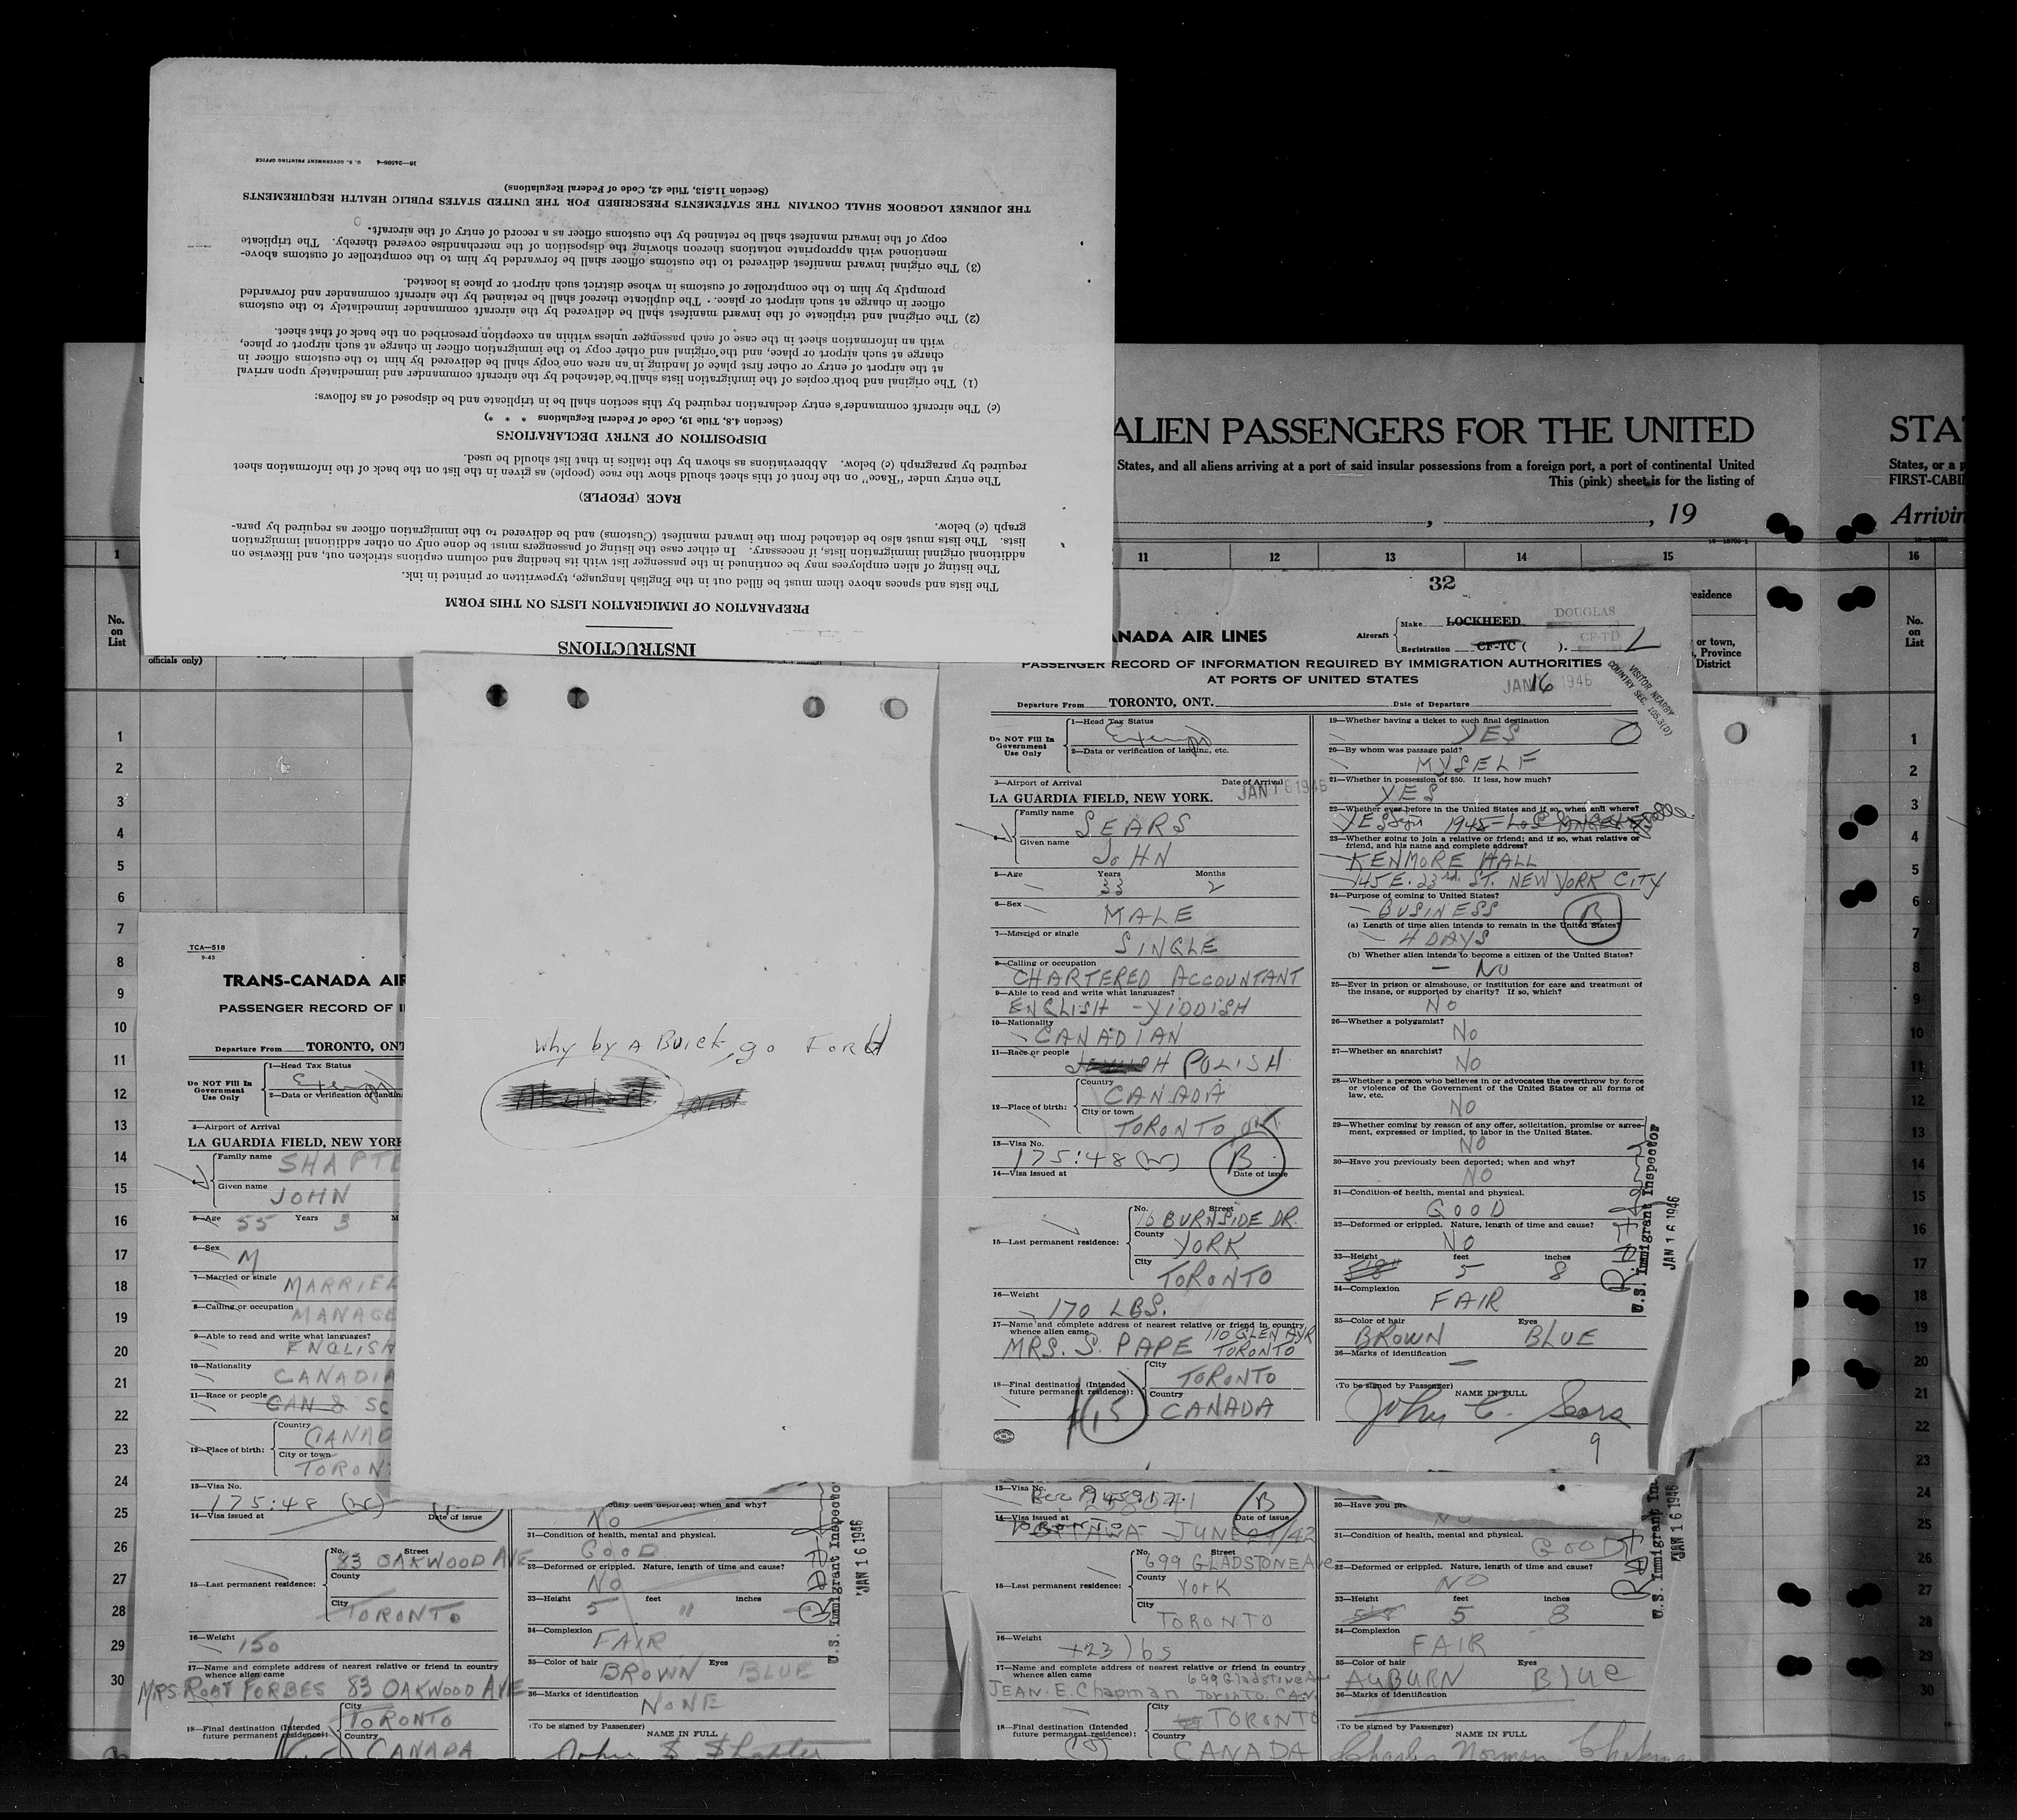 INSTRUCTIONS
PREPARATION OF IMMIGRATION LISTS ON THIS FORM
The lists and spaces above them must be filled out in the English language, typewritten or printed in ink.
The listing of alien employees may be continued in the passenger list with its heading and column captions stricken out, and likewise on
additional original immigration lists, if necessary. In either case the listing of passengers must be done only on other additional immigration
lists. The lists must also be detached from the inward manifest (Customs) and be delivered to the immigration officer as required by para-
graph (c) below.
RACE (PEOPLE)
The entry under "Race" on the front of this sheet should show the race (people) as given in the list on the back of the information sheet
required by paragraph (c) below. Abbreviations as shown by the italics in that list should be used.
DISPOSITION OF ENTRY DECLARATIONS
(Section 4.8, Title 19, Code of Federal Regulations * * *)
(c) The aircraft commander's entry declaration required by this section shall be in triplicate and be disposed of as follows:
(1) The original and both copies of the immigration lists shall be detached by the aircraft commander and immediately upon arrival
at the airport of entry or other first place of landing in an area one copy shall be delivered by him to the customs officer in
charge at such airport or place, and the original and other copy to the immigration officer in charge at such airport or place,
with an information sheet in the case of each passenger unless within an exception prescribed on the back of that sheet.
(2) The original and triplicate of the inward manifest shall be delivered by the aircraft commander immediately to the customs
officer in charge at such airport or place. The duplicate thereof shall be retained by the aircraft commander and forwarded
promptly by him to the comptroller of customs in whose district such airport or place is located.
(3) The original inward manifest delivered to the customs officer shall be forwarded by him to the comptroller of customs above-
mentioned with appropriate notations thereon showing the disposition of the merchandise covered thereby. The triplicate
copy of the inward manifest shall be retained by the customs officer as a record of entry of the aircraft.
THE JOURNEY LOGBOOK SHALL CONTAIN THE STATEMENTS PRESCRIBED FOR THE UNITED STATES PUBLIC HEALTH REQUIREMENTS
(Section 11.513, Title 42, Code of Federal Regulations)
16—24598-4 U. S. GOVERNMENT PRINTING OFFICE
ALIEN PASSENGERS FOR THE UNITED
States, and all aliens arriving at a port of said insular possessions from a foreign port, a port of continental United
This (pink) sheet is for the listing of
, 19
11 12 13 14 15
STA
States, or a p
FIRST-CABI
Arrivin
16
No.
on
List
1
No.
on
List
officials only)
1
2
3
4
5
6
7
8
9
10
11
12
13
14
15
16
17
18
19
20
21
22
23
24
25
26
27
28
29
30
esidence
or town,
, Province
District
Why by A Buick, go Ford
32
ANADA AIR LINES
Aircraft
Make LOCKHEED DOUGLAS
Registration CF-TC ( ). CF-TD L
PASSENGER RECORD OF INFORMATION REQUIRED BY IMMIGRATION AUTHORITIES
AT PORTS OF UNITED STATES
JAN 16 1946
VISITOR NEARBY
COUNTRY SEC. 105.3(D)
Departure From TORONTO, ONT. Date of Departure
Do NOT Fill In
Government
Use Only
1—Head Tax Status
Exempt
2—Data or verification of landing, etc.
3—Airport of Arrival Date of Arrival
LA GUARDIA FIELD, NEW YORK. JAN 16 1946
Family name
SEARS
Given name
JOHN
5—Age Years Months
33 2
6—Sex
MALE
7—Married or single
SINGLE
8—Calling or occupation
CHARTERED ACCOUNTANT
9—Able to read and write what languages?
ENGLISH - YIDDISH
10—Nationality
CANADIAN
11—Race or people
POLISH
12—Place of birth:
Country
CANADA
City or town
TORONTO ONT.
13—Visa No.
175:48 (W) B
14—Visa issued at Date of issue
15—Last permanent residence:
No. Street
16 BURNSIDE DR.
County
YORK
City
TORONTO
16—Weight
170 LBS.
17—Name and complete address of nearest relative or friend in country
whence alien came
MRS. S. PAPE 110 GLEN AYR
TORONTO
18—Final destination (Intended
future permanent residence):
City
TORONTO
Country
CANADA
15
19—Whether having a ticket to such final destination
YES
20—By whom was passage paid?
MYSELF
21—Whether in possession of $50. If less, how much?
YES
22—Whether ever before in the United States and if so, when and where?
YES 1945 - LOS ANGELES
23—Whether going to join a relative or friend; and if so, what relative or
friend, and his name and complete address?
KENMORE HALL
145 E. 23rd ST. NEW YORK CITY
24—Purpose of coming to United States?
BUSINESS B
(a) Length of time alien intends to remain in the United States?
4 DAYS
(b) Whether alien intends to become a citizen of the United States?
— NO
25—Ever in prison or almshouse, or institution for care and treatment of
the insane, or supported by charity? If so, which?
NO
26—Whether a polygamist?
NO
27—Whether an anarchist?
NO
28—Whether a person who believes in or advocates the overthrow by force
or violence of the Government of the United States or all forms of
law, etc.
NO
29—Whether coming by reason of any offer, solicitation, promise or agree-
ment, expressed or implied, to labor in the United States.
NO
30—Have you previously been deported; when and why?
NO
31—Condition of health, mental and physical.
GOOD
32—Deformed or crippled. Nature, length of time and cause?
NO
33—Height feet inches
5'8" 5 8
34—Complexion
FAIR
35—Color of hair Eyes
BROWN BLUE
36—Marks of identification
—
(To be signed by Passenger)
NAME IN FULL
John C. Sears
9
U.S. Immigrant Inspector
JAN 16 1946
TCA—518
9-45
TRANS-CANADA AIR
PASSENGER RECORD OF I
Departure From TORONTO, ONT
Do NOT Fill In
Government
Use Only
1—Head Tax Status
Exempt
2—Data or verification of landin
3—Airport of Arrival
LA GUARDIA FIELD, NEW YORK
Family name
SHAPTE
Given name
JOHN
5—Age 55 Years 3 M
6—Sex
M
7—Married or single
MARRIED
8—Calling or occupation
MANAGE
9—Able to read and write what languages?
ENGLISH
10—Nationality
CANADIA
11—Race or people
CAN & SC
12—Place of birth:
Country
CANAD
City or town
TORON
13—Visa No.
175:48 (W)
14—Visa issued at Date of issue
15—Last permanent residence:
No. Street
83 OAKWOOD AVE
County
City
TORONTO
16—Weight
150
17—Name and complete address of nearest relative or friend in country
whence alien came
MRS. ROBT FORBES 83 OAKWOOD AVE
18—Final destination (Intended
future permanent residence):
City
TORONTO
Country
CANADA
ously been deported; when and why?
NO
31—Condition of health, mental and physical.
GOOD
32—Deformed or crippled. Nature, length of time and cause?
NO
33—Height feet inches
5 11
34—Complexion
FAIR
35—Color of hair Eyes
BROWN BLUE
36—Marks of identification
NONE
(To be signed by Passenger)
NAME IN FULL
U.S. Immigrant Inspector
JAN 16 1946
13—Visa No.
B
14—Visa issued at Date of issue
OTTAWA - JUNE 29/42
15—Last permanent residence:
No. Street
699 GLADSTONE Ave
County
York
City
TORONTO
16—Weight
123 lbs
17—Name and complete address of nearest relative or friend in country
whence alien came
JEAN. E. Chapman 699 Gladstone Ave
Toronto. CAN.
18—Final destination (Intended
future permanent residence):
City
TORONTO
Country
CANADA
(15)
30—Have you pre
NO
31—Condition of health, mental and physical.
GOOD
32—Deformed or crippled. Nature, length of time and cause?
NO
33—Height feet inches
5'8 5 8
34—Complexion
FAIR
35—Color of hair Eyes
AUBURN BLUE
36—Marks of identification
(To be signed by Passenger)
NAME IN FULL
Charles Norman Chapman
U.S. Immigrant In
JAN 16 1946
1
2
3
4
5
6
7
8
9
10
11
12
13
14
15
16
17
18
19
20
21
22
23
24
25
26
27
28
29
30